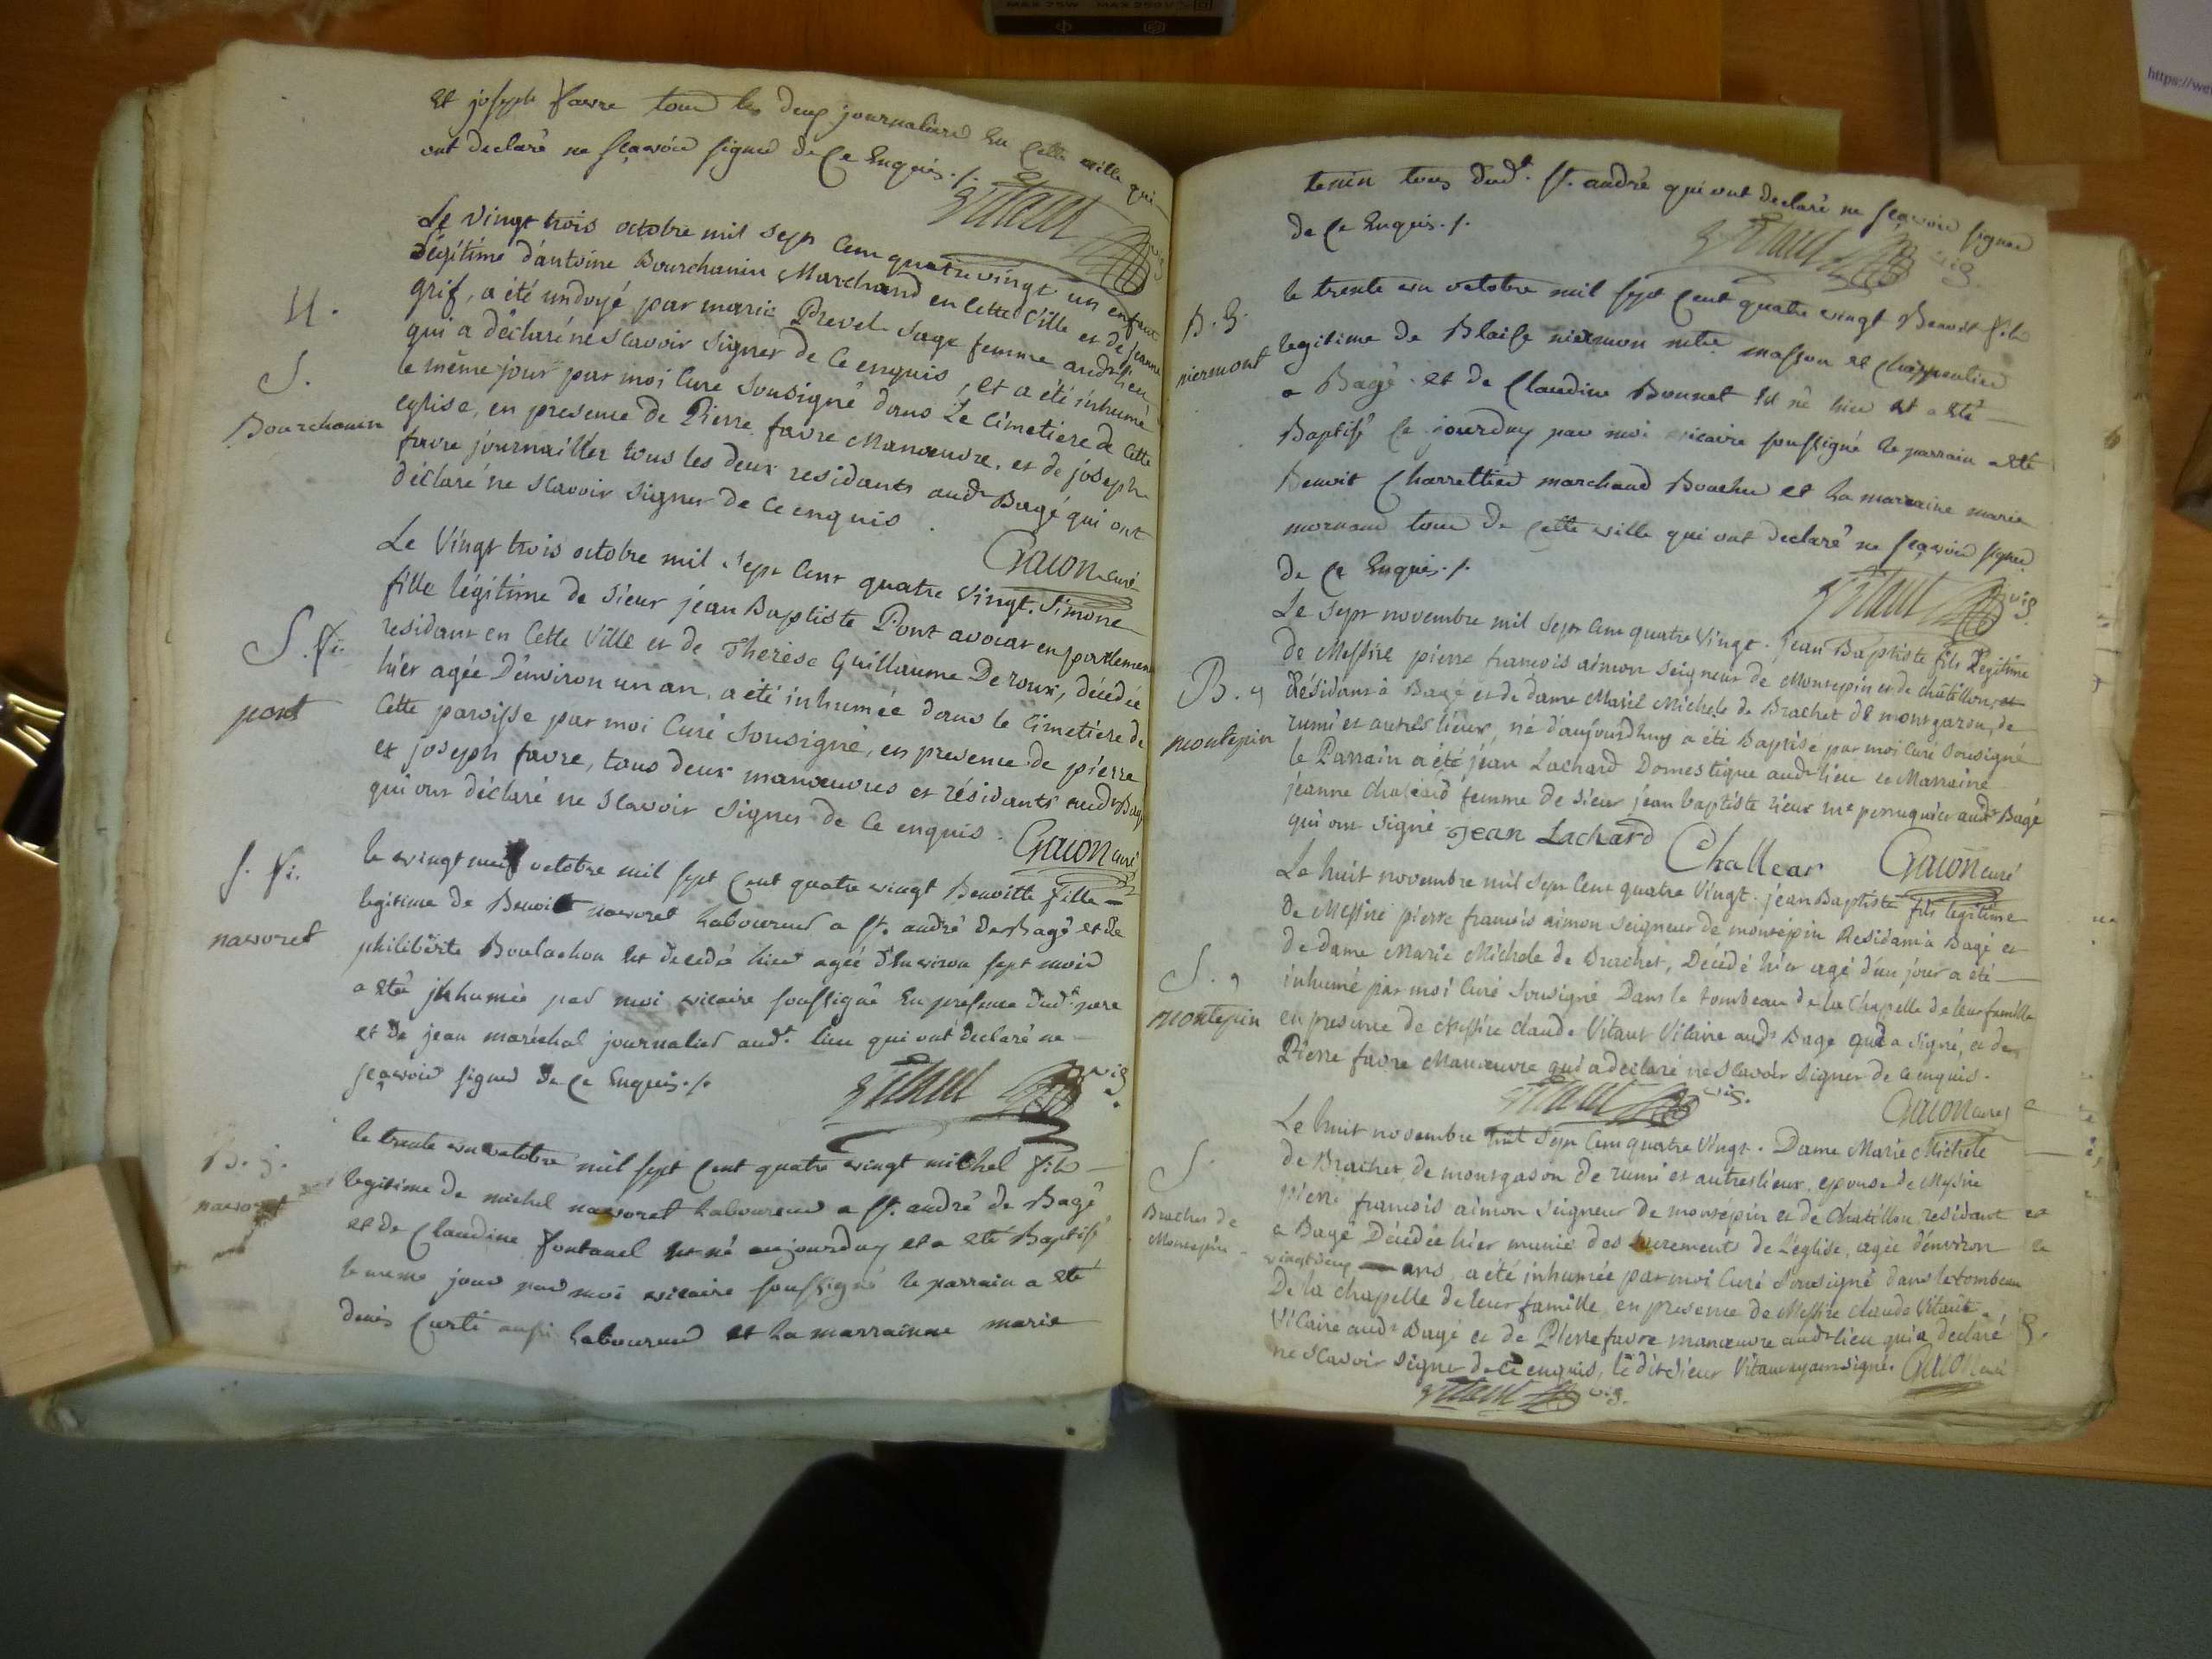 MAX 25W MAX 250V
et joseph favre tous les deux journaliers en cette ville qui
ont declaré ne sçavoir signer de ce enquis ./.
Vitaut vic.
Le vingt trois octobre mil sept cent quatre vingt un enfant
légitime d'antoine Bourchanin Marchand en cette ville et de jeanne
grif, a été undoyé par marie Prevel sage femme audt lieu
qui a déclaré ne scavoir signer de ce enquis, et a été inhumé
le même jour par moi Curé sousigné dans Le Cimetiere de cette
eglise, en presence de Pierre favre Manoeuvre, et de joseph
favre journaillier tous les deux residants audt Bagé qui ont
déclaré ne scavoir signer de ce enquis .
Gacon curé
S.
Bourchanin
Le Vingt trois octobre mil sept cent quatre vingt. Simone
fille légitime de sieur jean Baptiste Pont avocat en parlement
residant en cette ville et de Thérèse Guillaume De roux, décédée
hier agée d'environ un an, a été inhumée dans le Cimetiere de
cette paroisse par moi Curé sousigné, en presence de pierre
et joseph favre, tous deux manoeuvres et résidants audt Bagé
qui ont déclaré ne scavoir signer de ce enquis . Gacon curé
S. fi.
pont
le vingt neuf octobre mil sept cent quatre vingt Benoitte fille
legitime de Benoit navoret laboureur a st. andré de Bagé et de
philiberte Boulachon est decedé hier agée d'environ sept mois
a eté jnhumée par moi vicaire soussigné en presence dudt. pere
et de jean maréchal journalier audt. lieu qui ont declaré ne
sçavoir signer de ce enquis ./.
Vitaut vic.
S. fi.
navoret
le trente un octobre mil sept cent quatre vingt michel fils
legitime de michel navoret laboureur a st. andré de Bagé
et de Claudine fontanel est né aujourduy et a eté Baptisé
le meme jour par moi vicaire soussigné le parrain a eté
denis Curti aussi laboureur et la marrainne marie
B. g.
navoret
terin tous dudt. st. andré qui ont declaré ne sçavoir signer
de ce enquis ./.
Vitaut vic.
le trente un octobre mil sept cent quatre vingt Benoit fils
legitime de Blaise niermon mtre masson et charpentier
a Bagé et de Claudine Bonnet est né hier et a eté
Baptisé ce jourduy par moi vicaire soussigné le parrain a eté
Benoit Charrettier marchand Boucher et la marraine marie
mornand tous de cette ville qui ont declaré ne sçavoir signer
de ce enquis ./.
Vitaut vic.
B. G.
niermont
Le sept novembre mil sept cent quatre vingt. jean Baptiste fils légitime
de Messire pierre francois aimon seigneur de Montepin et de châtillon
Résidant à Bagé et de dame Marie Michele de Brachet de montgazon, de
rumi et autres lieux, né d'aujourdhuy a été Baptisé par moi Curé sousigné
le Parrain a été jean Lachard Domestique audt lieu et Marraine
jeanne chaleard femme de sieur jean baptiste rieux me perruquier audt Bagé
qui ont signé jean Lachard Challear Gacon curé
B. g
montepin
Le huit novembre mil sept cent quatre vingt. jean Baptiste fils legitime
de Messire pierre francois aimon seigneur de montépin Residant à Bagé et
de dame Marie Michele de Brachet, Décédé hier agé d'un jour a été
inhumé par moi Curé sousigné Dans le tombeau de la Chapelle de leur famille
en presence de Messire claude Vitaut Vicaire audt Bagé qui a signé, et de
Pierre favre Manoeuvre qui a déclaré ne scavoir signer de ce enquis .
Vitaut vic. Gacon curé
S. g
montepin
Le huit novembre mil sept cent quatre vingt. Dame Marie Michele
de Brachet de montgason de rumi et autres lieux, epouse de Messire
pierre francois aimon seigneur de montépin et de Chatillon residant
a Bagé Décédée hier munie des sacrements de l'église, agée d'environ
vingt deux ans a été inhumée par moi Curé sousigné dans le tombeau
De la chapelle de leur famille, en presence de Messire claude Vitaut
Vicaire audt Bagé et de Pierre favre manoeuvre audt lieu qui a déclaré
ne scavoir signer de ce enquis, le dit sieur Vitaut ayant signé. Gacon curé
Vitaut vic.
S.
Brachet de
Montepin